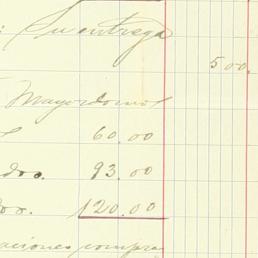 : Su entrega
500.
Mayordomos
60.00
dos. 93.00
dos. 120.00
aciones compra